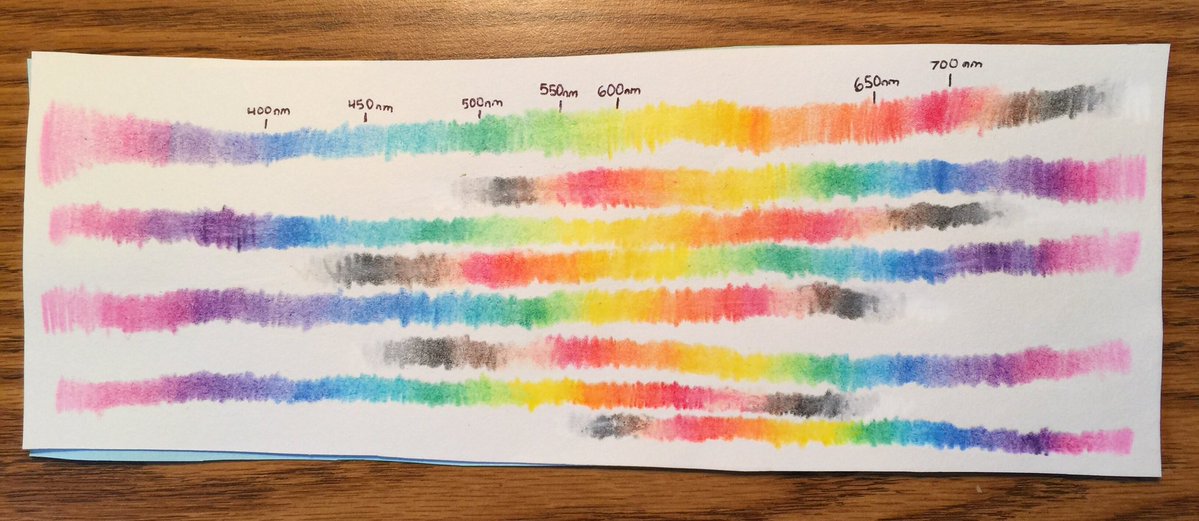 400nm 450nm 500nm 550nm 600nm 650nm 700nm